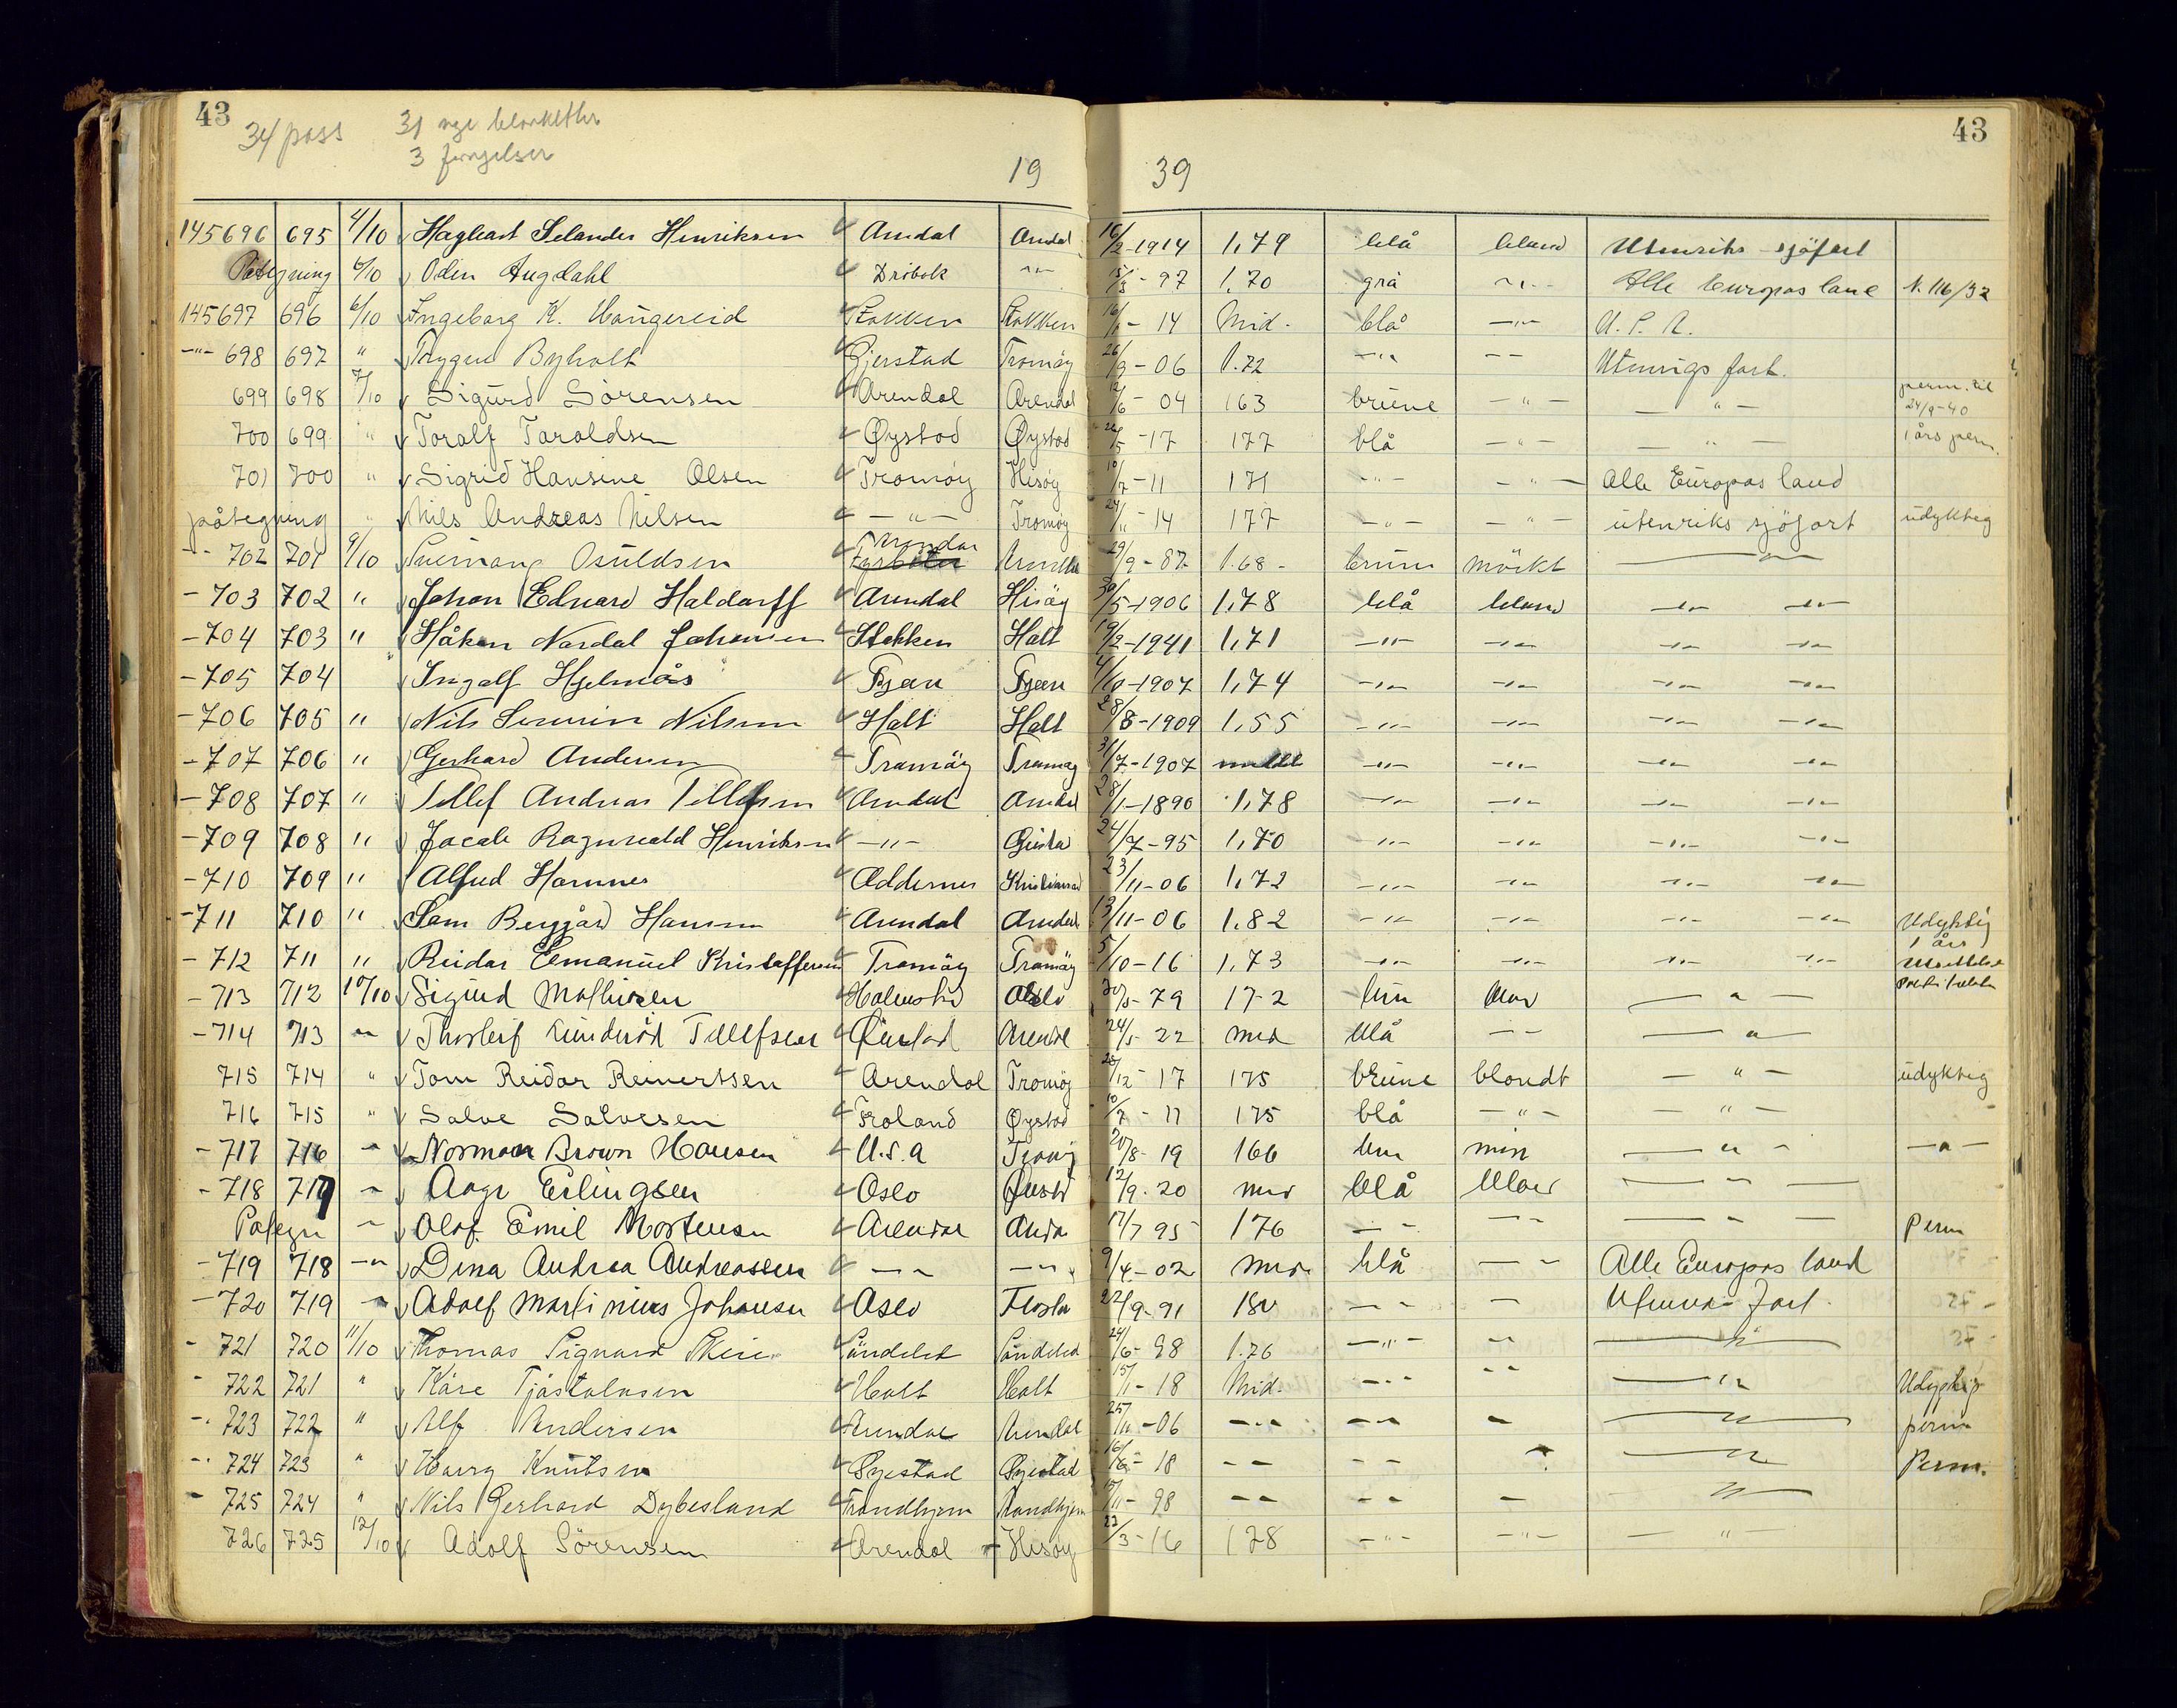 43 43
34 pass 31 nye blanketter
3
19 39
145696 695 4/10 Hagbart Selander Henriksen Arendal Arendal 16/2-1914 1,79 blå blond Utenriks sjöfart
Påtegning 6/10 Odin Augdahl Dröbak -"- 15/3-97 1,70 grå -"- Alle Europas land N. 116/32
145697 696 6/10 Ingeborg K. Haugereid Stokken Stokken 14 Mid. blå -"- U.S.A.
-"- 698 697 " Trygve Byholt Gjerstad Tromöy 26/9-06 1.72 -"- -- Utenrigs fart.
699 698 7/10 Sigurd Sörensen Arendal Arendal 12/6-04 163 brune -"- -"- perm. til 24/9-40
700 699 " Toralf Taraldsen Øystad Øystad /5-17 177 blå -"- -"- 1 års perm.
701 700 " Sigrid Hansine Olsen Tromöy Hisöy 10/7-11 171 -"- -"- Alle Europas land
påtegning " Nils Andreas Nilsen -"- Tromöy 24/11-14 177 -"- -"- utenriks sjöfart udyktig
-- 702 701 9/10 Osuldsen Arendal Arendal 29/9-87 1.68- brune mörkt -"-
-703 702 " Johan Edvard Haldorff Arendal Hisöy 30/5-1906 1,78 blå blond -"- -"-
-704 703 " Håkon Nordal Johansen Stokken Holt 19/2-1941 1,71 -"- -"- -"- -"-
-705 704 " Ingolf Hjelmås Fjære Fjære 4/10-1907 1,74 -"- -"- -"- -"-
-706 705 " Nils Severin Nilsen Holt Holt 28/8-1909 1,55 -"- -"- -"- -"-
-707 706 " Gerhard Andersen Tromöy Tromöy 31/7-1907 middels -"- -"- -"- -"-
-708 707 " Tellef Andreas Tellefsen Arendal Arendal 28/1-1890 1,78 -"- -"- -"- -"-
-709 708 " Jacob Ragnvald Henriksen -"- Öiestad 24/7-95 1,70 -"- -"- -"- -"-
-710 709 " Alfred Hamnes Oddernes Kristiansand 23/11-06 1,72 -"- -"- -"- -"-
-711 710 " Sam Berggård Hansen Arendal Arendal 13/11-06 1,82 -"- -"- -"- -"- Udyktig
-712 711 " Reidar Emanuel Kristoffersen Tromöy Tromöy 5/10-16 1,73 -"- -"- -"- -"- 1 års utsettelse
-713 712 10/10 Sigurd Mathisen Holmestrand Oslo 30/5-79 172 brun blond -"-
-714 713 -"- Thorleif Lunderöd Tellefsen Öiestad Arendal 24/5-22 med blå -- -"-
715 714 " Tom Reidar Reinertsen Arendal Tromöy 28/12-17 175 brune blondt -"- udyktig
716 715 " Salve Salvesen Froland Øystad 10/7-11 175 blå -"- -"-
-717 716 -"- Norman Brown Hansen U.S.A Tromöy 20/8-19 166 brun mörk -"- -"-
-718 717 -"- Aage Erlingsen Oslo Öiestad 12/9-20 med blå blond -"-
Påtegn -"- Olaf Emil Mortensen Arendal Arendal 17/7 95 176 -"- -"- -"- Perm
-719 718 -"- Dina Andrea Andreassen -"- -"- 9/4-02 med. blå -"- Alle Europas land
-720 719 -"- Adolf Martinius Johansen Oslo Flosta 22/9-91 180 -"- - Utenriks fart.
-721 720 11/10 Thomas Sigvard Söndeled Söndeled 24/6-98 1.76 -"- -"- -"-
-722 721 " Kåre Tjöstolvsen Holt Holt 15/1-18 Mid. -"- -"- -"- Udyktig
-723 722 " Alf Andersen Arendal Arendal 25/11-06 -"- -"- - -"- perm
-724 723 " Harry Knutsen Öyestad Öyestad 16/6-18 -- -- -"- -"- Perm.
-725 724 " Nils Gerhard Dybesland Trondhjem Trondhjem 15/11-98 -- -- - -"-
726 725 12/10 Adolf Sörensen Arendal Hisöy 23/3-16 178 -"- -"- -"-